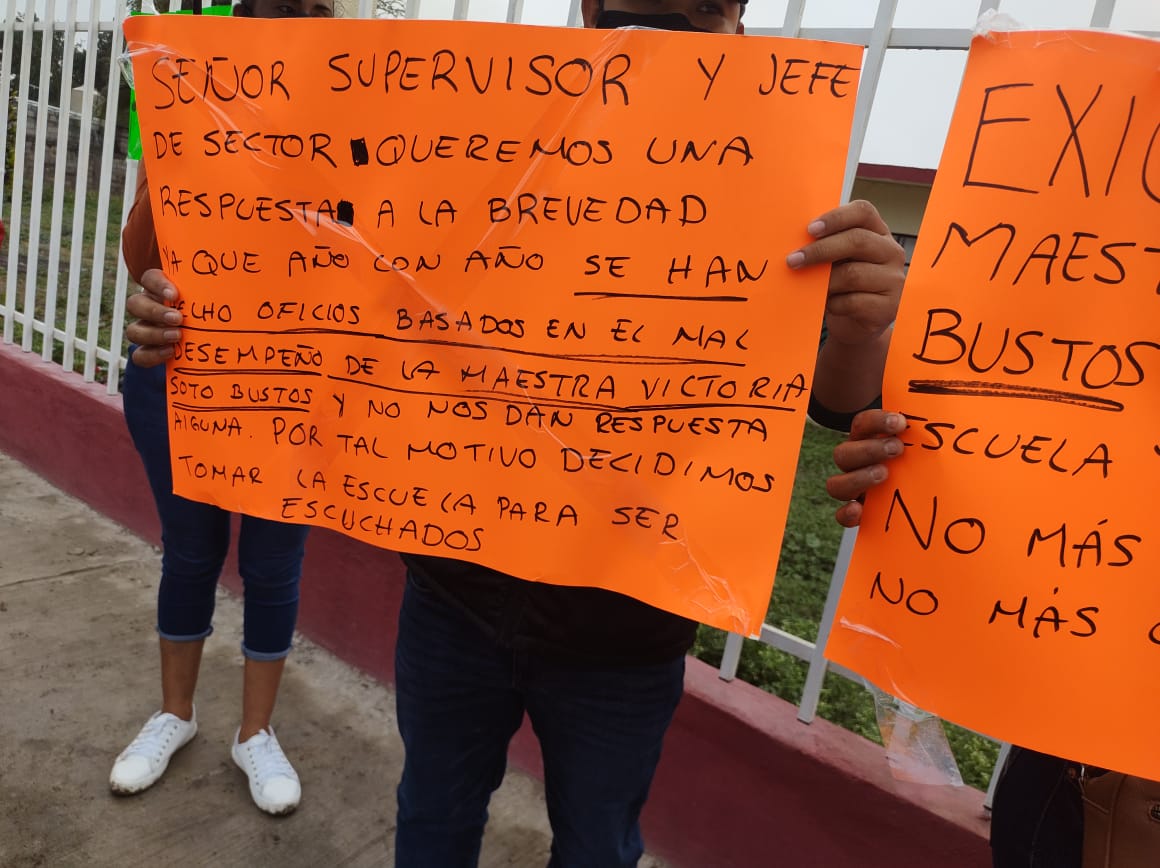 SEÑOR SUPERVISOR Y JEFE
DE SECTOR QUEREMOS UNA
RESPUESTA A LA BREVEDAD
YA QUE AÑO CON AÑO SE HAN
HECHO OFICIOS BASADOS EN EL MAL
DESEMPEÑO DE LA MAESTRA VICTORIA
SOTO BUSTOS Y NO NOS DAN RESPUESTA
AlGUNA. POR TAL MOTIVO DECIDIMOS
TOMAR LA ESCUELA PARA SER
ESCUCHADOS
EXIG
MAEST
BUSTOS
ESCUELA
NO MÁS
NO MÁS